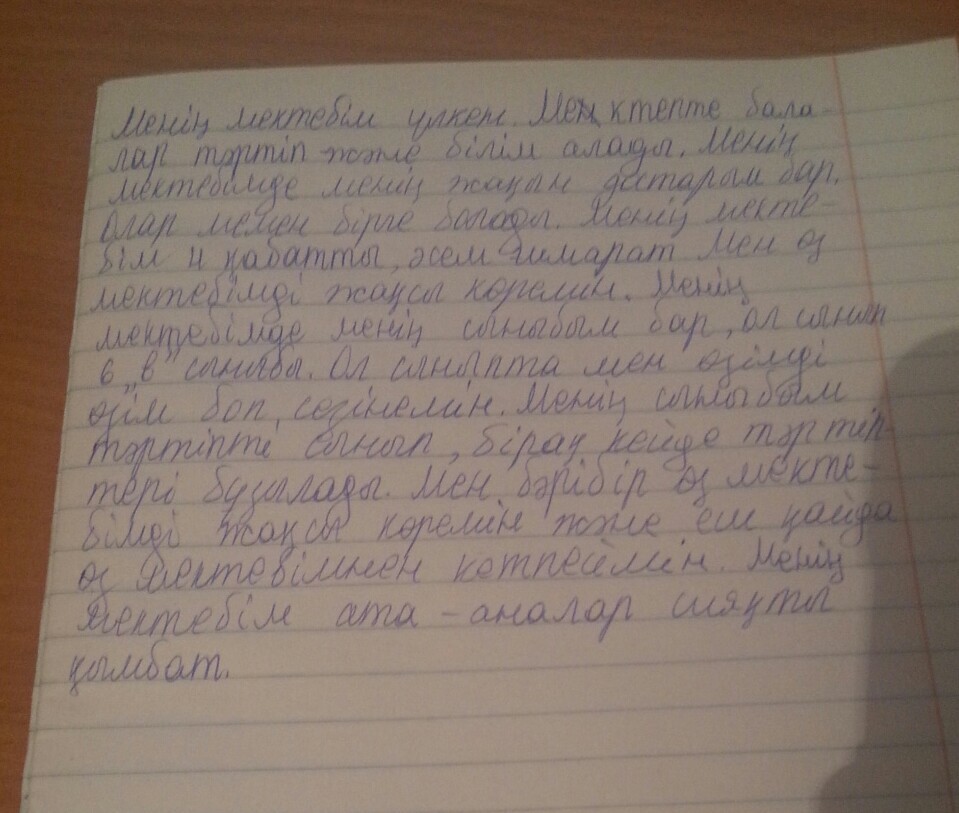 Менің мектебім үлкен. Мең ктепте бала-
лар тәртіп және білім алады. Менің
мектебімде менің жақын достарым бар.
Олар мемен бірге болады. Менің мекте-
бім 4 қабатты, әсем ғимарат Мен өз
мектебімді жақсы көремін. Менің
мектебімде менің сыныбым бар, ол сынып
6 „в" сыныбы. Ол сыныпта мен өзімді
өзім боп сезінемін. Менің сыныбым
тәртіпті сынып, бірақ кейде тәртіп-
тері бұзылады. Мен бәрібір өз мекте-
бімді жақсы көремін және еш қайда
өз мектебімнен кетпеймін. Менің
мектебім ата-аналар сияқты
қымбат.